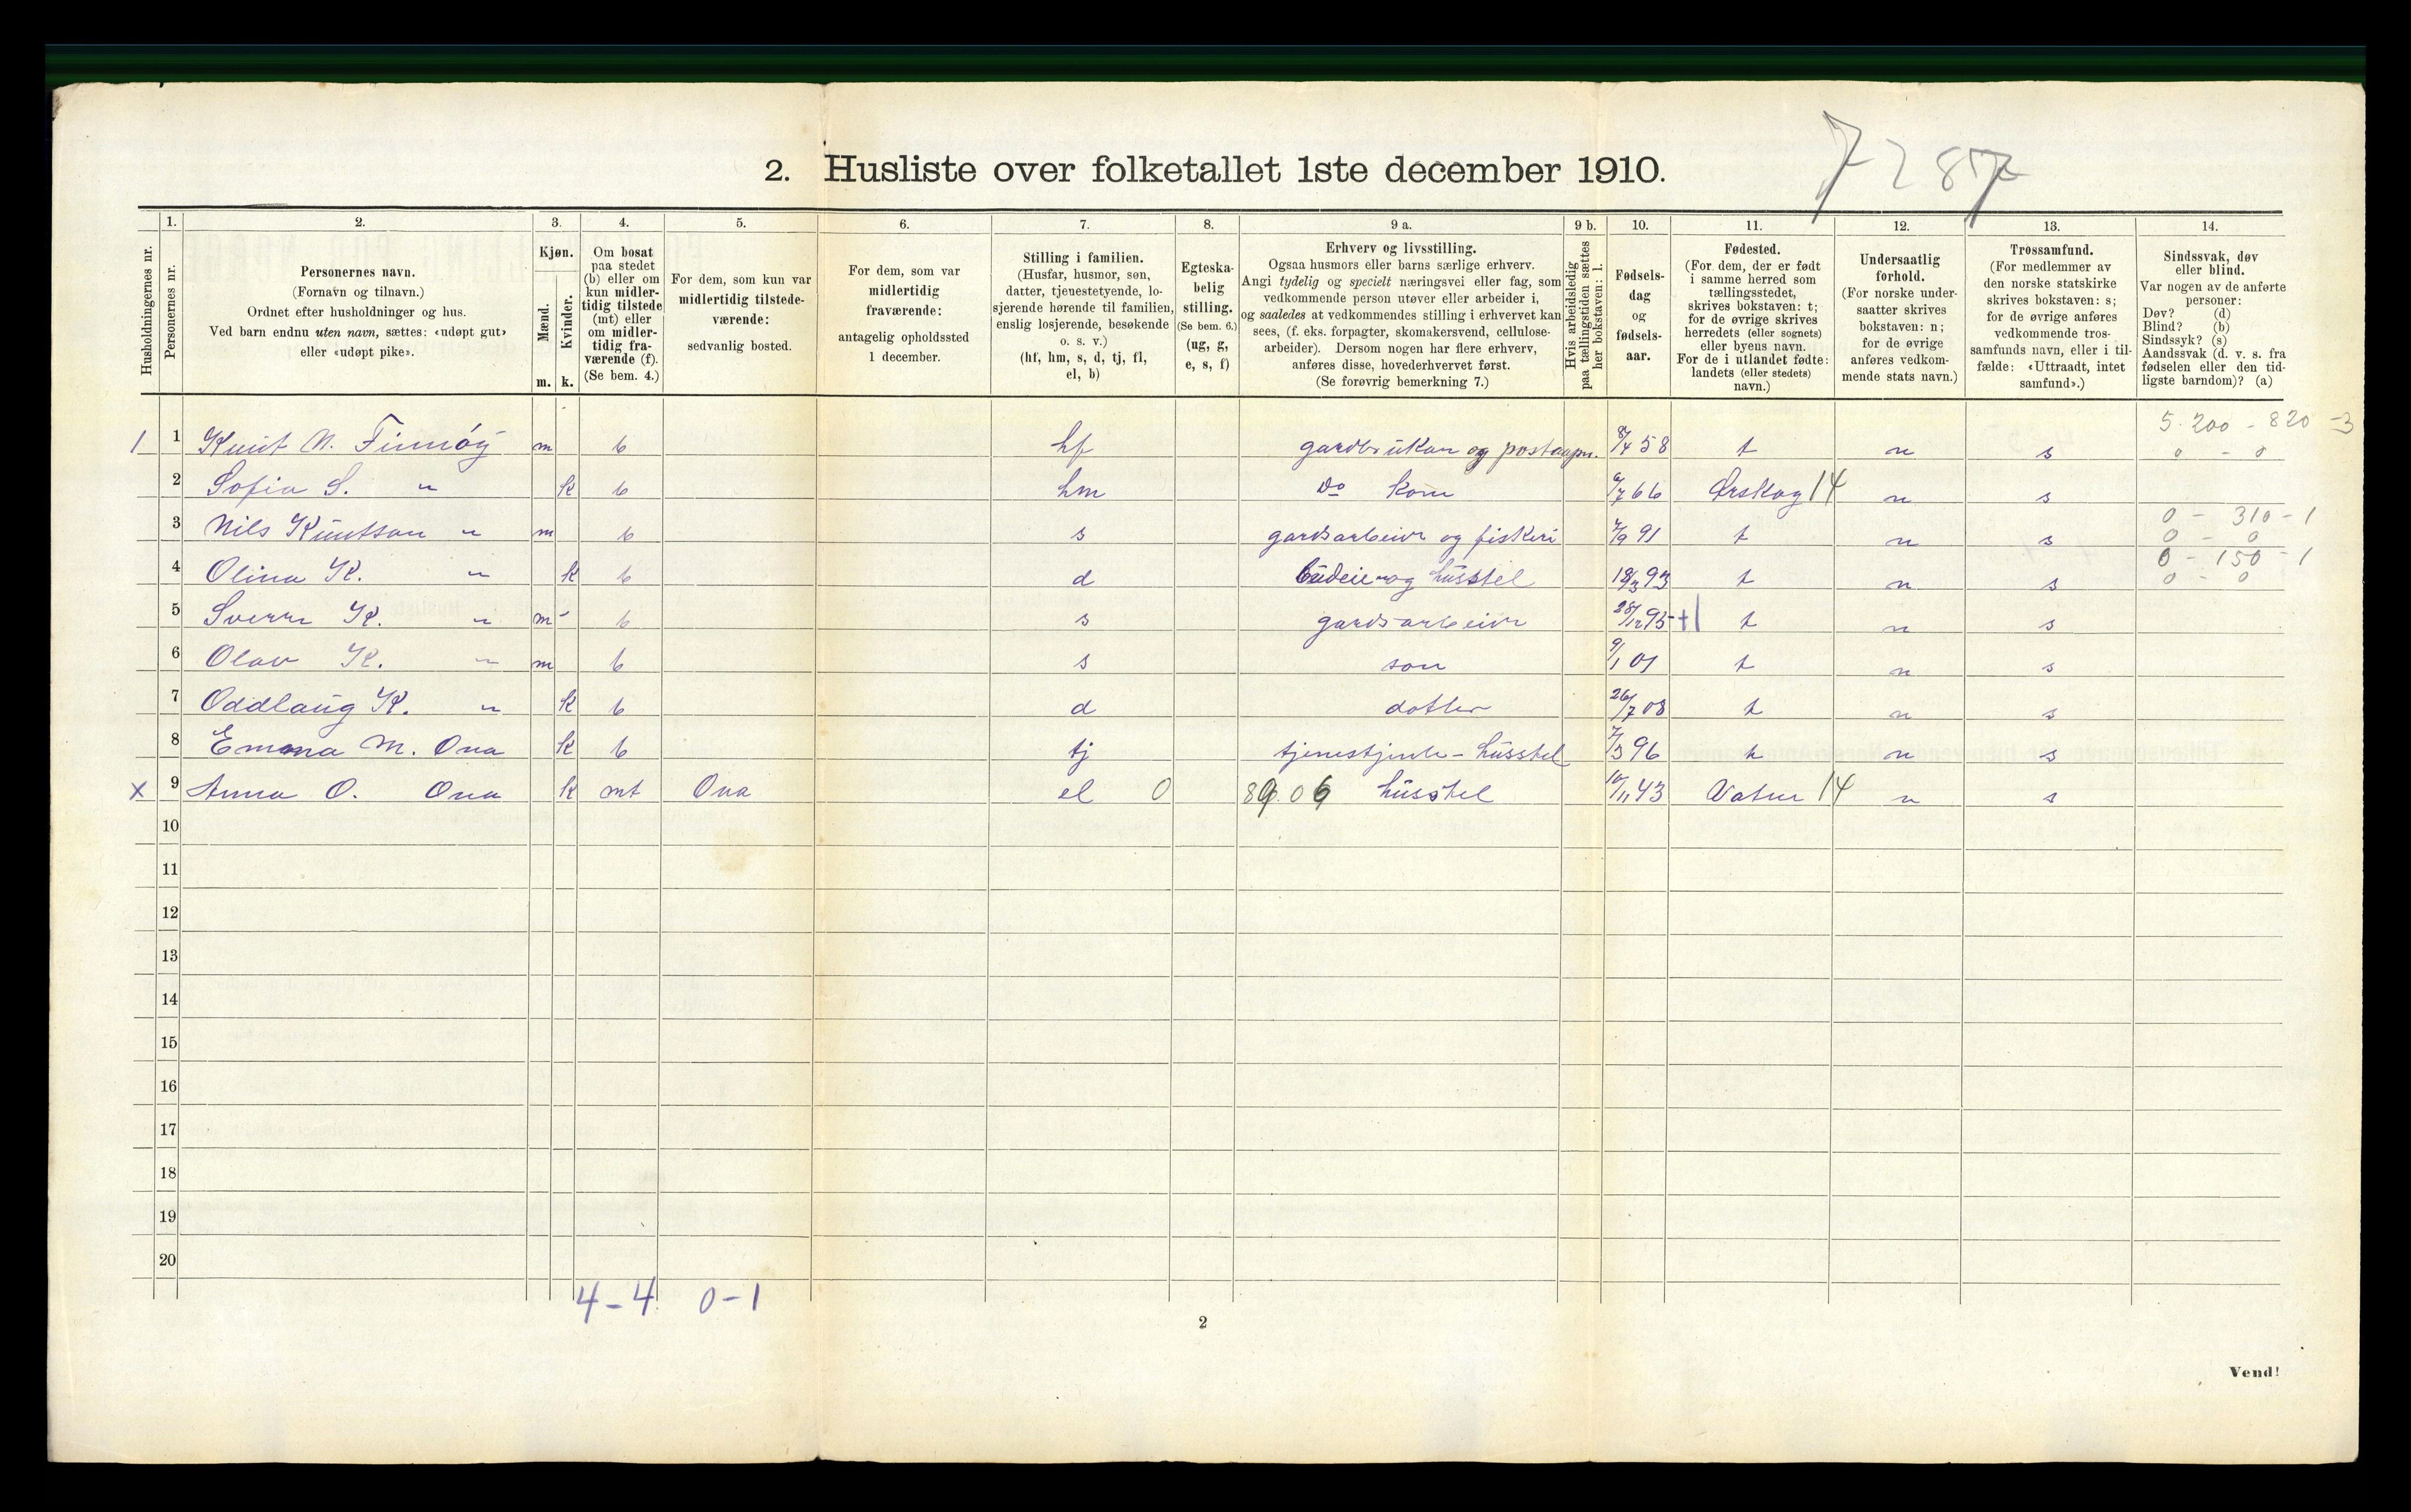 7287
2. Husliste over folketallet 1ste december 1910.
Husholdningernes nr.
1. Personernes nr.
2. Personernes navn.
(Fornavn og tilnavn.)
Ordnet efter husholdninger og hus.
Ved barn endnu uten navn, sættes: «udøpt gut»
eller «udøpt pike».
3. Kjøn.
Mænd. m.
Kvinder. k.
4. Om bosat
paa stedet
(b) eller om
kun midler-
tidig tilstede
(mt) eller
om midler-
tidig fra-
værende (f).
(Se bem. 4.)
5. For dem, som kun var
midlertidig tilstede-
værende:
sedvanlig bosted.
6. For dem, som var
midlertidig
fraværende:
antagelig opholdssted
1 december.
7. Stilling i familien.
(Husfar, husmor, søn,
datter, tjenestetyende, lo-
sjerende hørende til familien,
enslig losjerende, besøkende
o. s. v.)
(hf, hm, s, d, tj, fl,
el, b)
8. Egteska-
belig
stilling.
(Se bem. 6.)
(ug, g,
e, s, f)
9 a. Erhverv og livsstilling.
Ogsaa husmors eller barns særlige erhverv.
Angi tydelig og specielt næringsvei eller fag, som
vedkommende person utøver eller arbeider i,
og saaledes at vedkommendes stilling i erhvervet kan
sees, (f. eks. forpagter, skomakersvend, cellulose-
arbeider). Dersom nogen har flere erhverv,
anføres disse, hovederhvervet først.
(Se forøvrig bemerkning 7.)
9 b. Hvis arbeidsledig
paa tællingstiden sættes
her bokstaven: l.
10. Fødsels-
dag
og
fødsels-
aar.
11. Fødested.
(For dem, der er født
i samme herred som
tællingsstedet,
skrives bokstaven: t;
for de øvrige skrives
herredets (eller sognets)
eller byens navn.
For de i utlandet fødte:
landets (eller stedets)
navn.)
12. Undersaatlig
forhold.
(For norske under-
saatter skrives
bokstaven: n;
for de øvrige
anføres vedkom-
mende stats navn.)
13. Trossamfund.
(For medlemmer av
den norske statskirke
skrives bokstaven: s;
for de øvrige anføres
vedkommende tros-
samfunds navn, eller i til-
fælde: «Uttraadt, intet
samfund».)
14. Sindssvak, døv
eller blind.
Var nogen av de anførte
personer:
Døv? (d)
Blind? (b)
Sindssyk? (s)
Aandssvak (d. v. s. fra
fødselen eller den tid-
ligste barndom)? (a)
5.200 - 820 - 3
1 1 Knut N. Finnøy m b hf gardbrukar og postaapn. 8/4 58 t n s 0 - 0
2 Sofia S. " k b hm do kone 6/7 66 Ørskog 14 n s
0 - 310 - 1
3 Nils Knutson " m b s gardsarbeide og fiskeri 7/9 91 t n s 0 - 0
0 - 150 - 1
4 Olina K. " k b d budeie og husstel 18/3 93 t n s 0 - 0
5 Sverre K. " m b s gardsarbeide 28/12 95 +1 t n s
6 Olav K. " m b s son 9/1 01 t n s
7 Oddlaug K. " k b d dotter 26/7 08 t n s
8 Emma M. Ona k b tj tjenestjente - husstel 7/3 96 t n s
x 9 Anna O. Ona k mt Ona el 0 husstel 10/11 43 Vatne 14 n s
10
11
12
13
14
15
16
17
18
19
20
4 - 4 0 - 1
2
Vend!